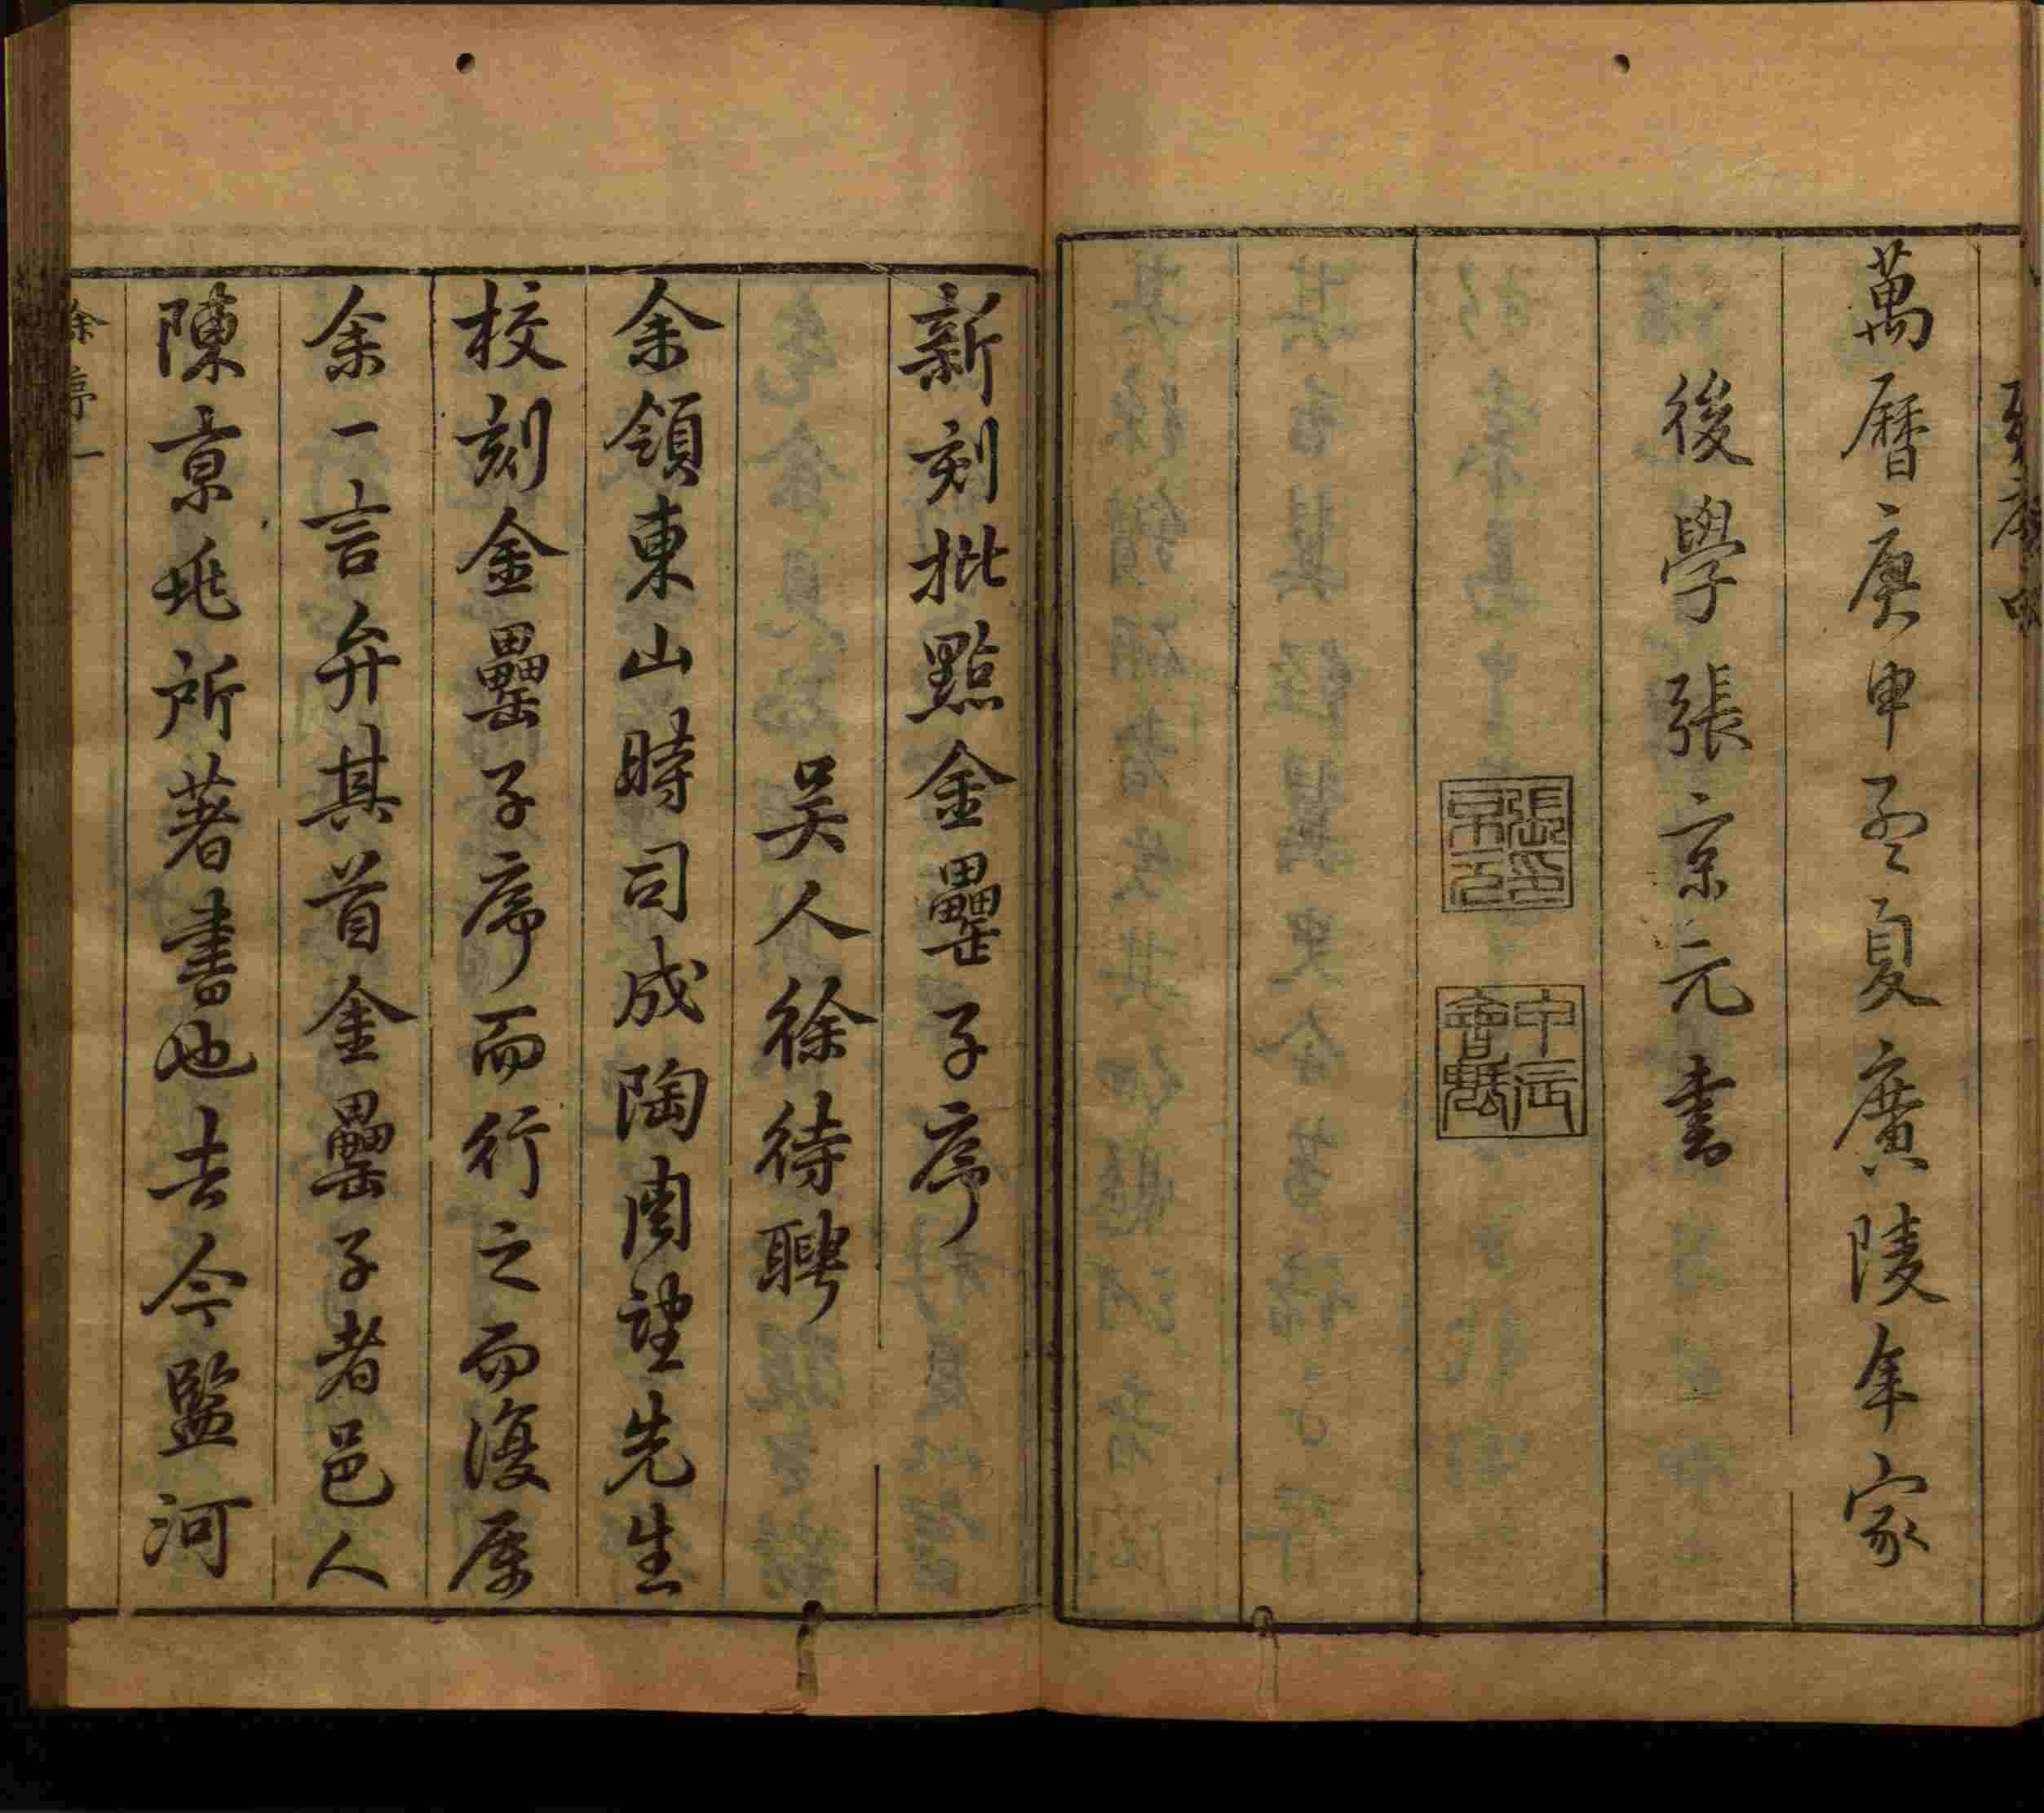 萬曆庚申孟夏廣陵年家
後學張京元書
張京元印
甲辰會魁
新刻批點金罍子序
吴人徐待聘
余領東山時司成陶周望先生
校刻金罍子序而行之而復属
余一言弁其首金罍子者邑人
陳京兆所著書也去今監河
徐序一